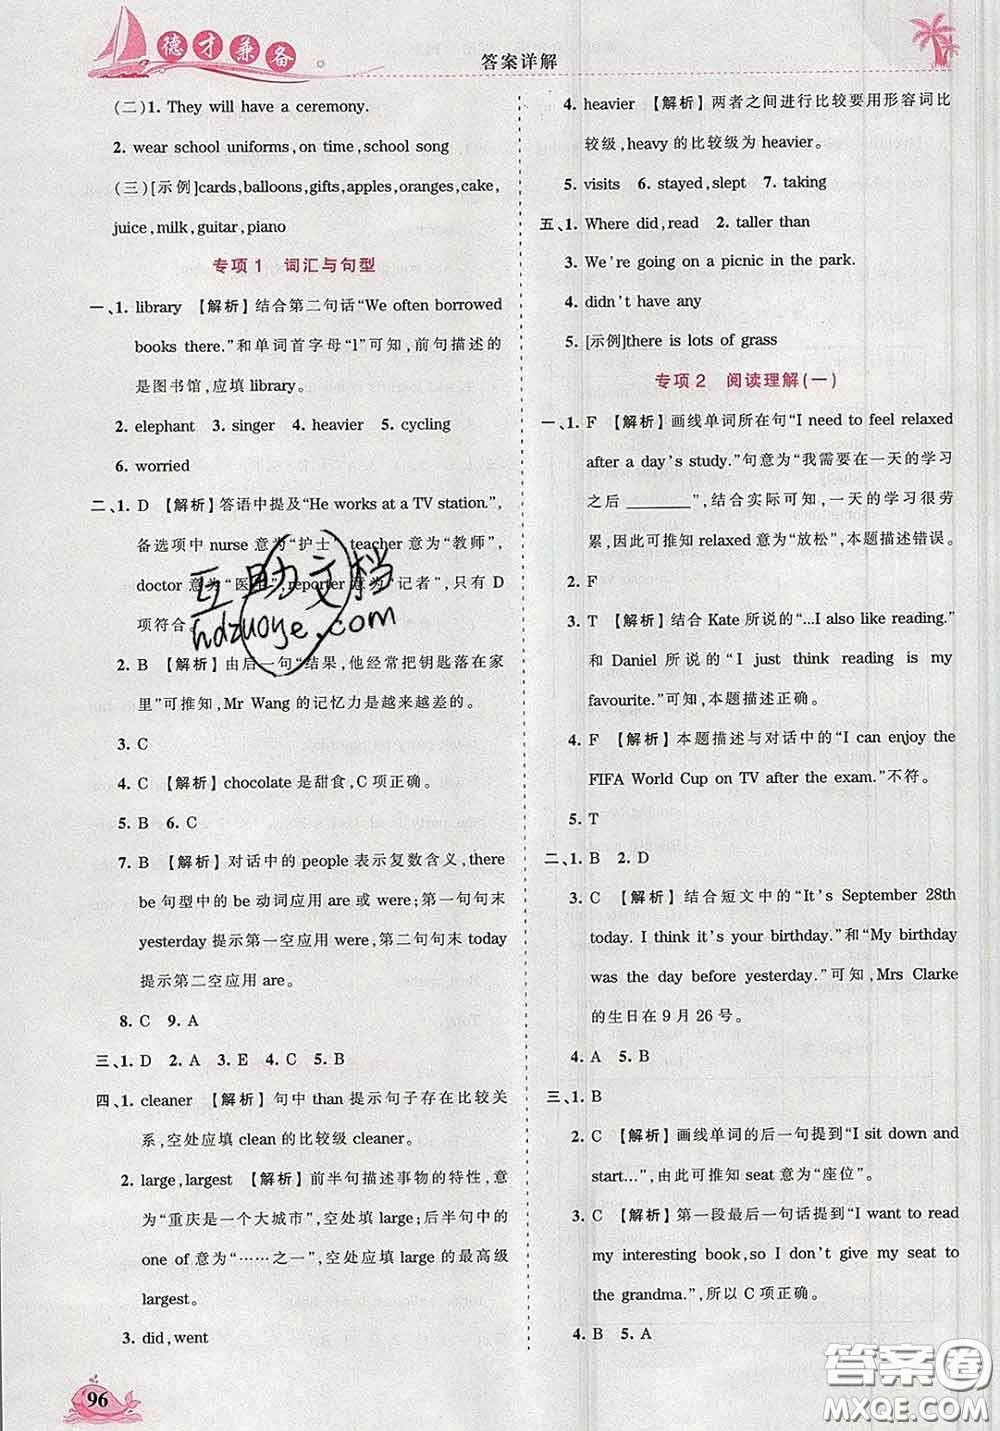 德才兼备
答案详解
(二)1. They will have a ceremony.
2. wear school uniforms,on time,school song
(三)[示例]cards,balloons,gifts,apples,oranges,cake,
juice,milk,guitar,piano
专项1 词汇与句型
一、1. library 【解析】结合第二句话“We often borrowed
books there.”和单词首字母“l”可知,前句描述的
是图书馆,应填 library。
2. elephant 3. singer 4. heavier 5. cycling
6. worried
二、1. D 【解析】答语中提及“He works at a TV station.”,
备选项中 nurse 意为“护士”,teacher 意为“教师”,
doctor 意为“医生”,reporter 意为“记者”,只有 D
项符合。
2. B 【解析】由后一句“结果,他经常把钥匙落在家
里”可推知,Mr Wang 的记忆力是越来越差的。
3. C
4. C 【解析】chocolate 是甜食,C 项正确。
5. B 6. C
7. B 【解析】对话中的 people 表示复数含义,there
be 句型中的 be 动词应用 are 或 were;第一句句末
yesterday 提示第一空应用 were,第二句句末 today
提示第二空应用 are。
8. C 9. A
三、1. D 2. A 3. E 4. C 5. B
四、1. cleaner 【解析】句中 than 提示句子存在比较关
系,空处应填 clean 的比较级 cleaner。
2. large,largest 【解析】前半句描述事物的特性,意
为“重庆是一个大城市”,空处填 large;后半句中的
one of 意为“……之一”,空处应填 large 的最高级
largest。
3. did,went
4. heavier 【解析】两者之间进行比较要用形容词比
较级,heavy 的比较级为 heavier。
5. visits 6. stayed,slept 7. taking
五、1. Where did,read 2. taller than
3. We're going on a picnic in the park.
4. didn't have any
5. [示例]there is lots of grass
专项2 阅读理解(一)
一、1. F 【解析】画线单词所在句“I need to feel relaxed
after a day's study.”句意为“我需要在一天的学习
之后 ______ ”,结合实际可知,一天的学习很劳
累,因此可推知 relaxed 意为“放松”,本题描述错误。
2. F
3. T 【解析】结合 Kate 所说的“...I also like reading.”
和 Daniel 所说的“I just think reading is my
favourite.”可知,本题描述正确。
4. F 【解析】本题描述与对话中的“I can enjoy the
FIFA World Cup on TV after the exam.”不符。
5. T
二、1. B 2. D
3. C 【解析】结合短文中的“It's September 28th
today. I think it's your birthday.”和“My birthday
was the day before yesterday.”可知,Mrs Clarke
的生日在 9 月 26 号。
4. A 5. B
三、1. B
2. C 【解析】画线单词的后一句提到“I sit down and
start...”,由此可推知 seat 意为“座位”。
3. C 【解析】第一段最后一句话提到“I want to read
my interesting book,so I don't give my seat to
the grandma.”,所以 C 项正确。
4. B 5. A
96
互助文档
hdzuoye.com
答案圈
MXQE.COM